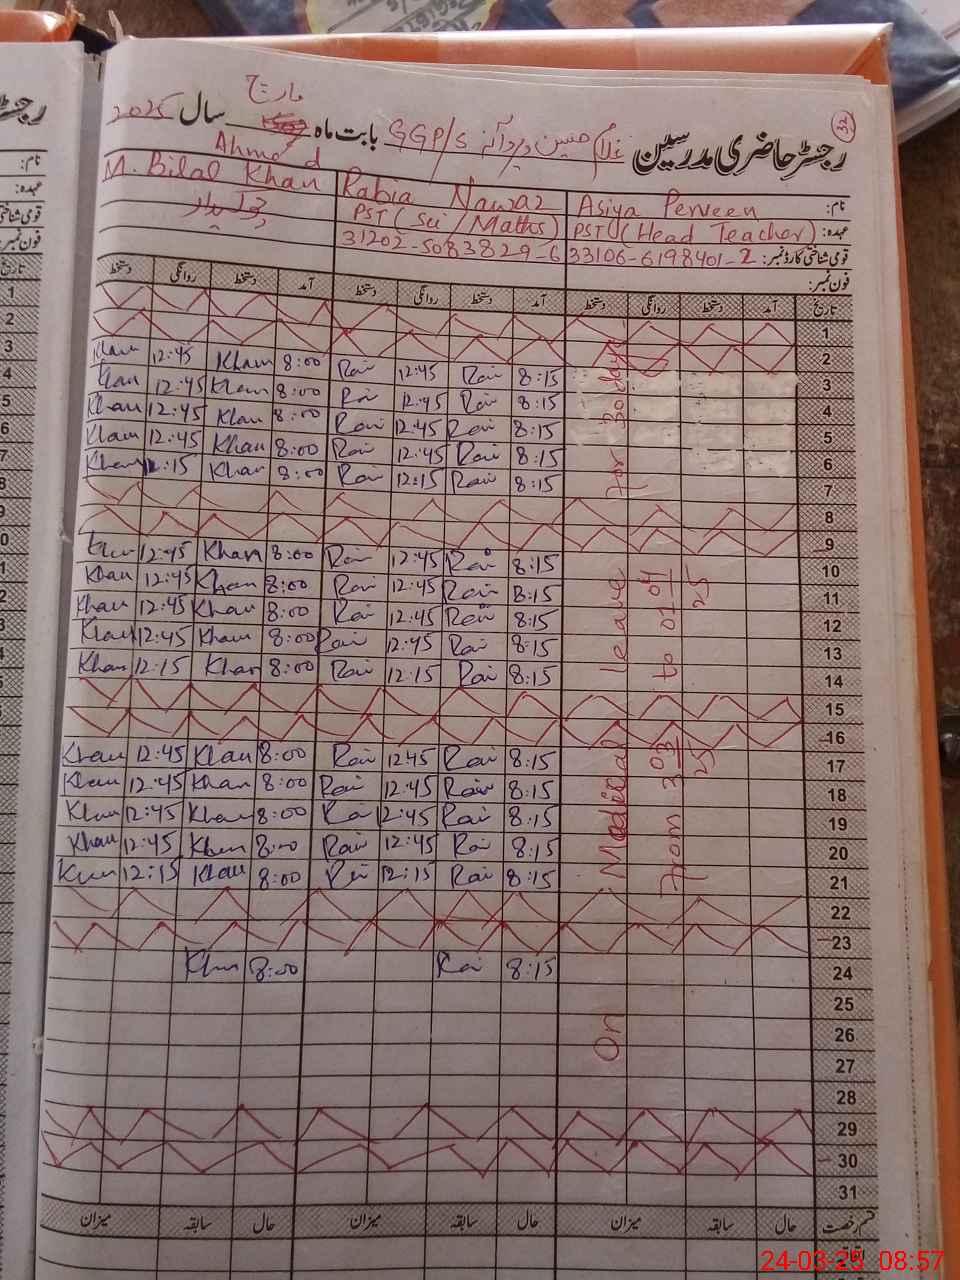 32
رجسٹر حاضری مدرسین GGP/S بابت ماہ مارچ سال 2025
نام: Asiya Perveen Rabia Nawaz M. Bilal Ahmed Khan
عہدہ: PST (Head Teacher) PST (Sci / Maths) چوکیدار
قومی شناختی کارڈ نمبر: 33106-6198401-2 31202-5083829-6
فون نمبر:
تاریخ آمد دستخط روانگی دستخط آمد دستخط روانگی دستخط آمد دستخط روانگی دستخط
1
2
3 8:15 Rai 12:45 Rai 8:00 Khan 12:45 Khan
4 8:15 Rai 12:45 Rai 8:00 Khan 12:45 Khan
5 8:15 Rai 12:45 Rai 8:00 Khan 12:45 Khan
6 8:15 Rai 12:45 Rai 8:00 Khan 12:45 Khan
7 8:15 Rai 12:15 Rai 8:00 Khan 12:15 Khan
8
9
10 8:15 Rai 12:45 Rai 8:00 Khan 12:45 Khan
11 8:15 Rai 12:45 Rai 8:00 Khan 12:45 Khan
12 8:15 Rai 12:45 Rai 8:00 Khan 12:45 Khan
13 8:15 Rai 12:45 Rai 8:00 Khan 12:45 Khan
14 8:15 Rai 12:15 Rai 8:00 Khan 12:15 Khan
15
16
17 8:15 Rai 12:45 Rai 8:00 Khan 12:45 Khan
18 8:15 Rai 12:45 Rai 8:00 Khan 12:45 Khan
19 8:15 Rai 12:45 Rai 8:00 Khan 12:45 Khan
20 8:15 Rai 12:45 Rai 8:00 Khan 12:45 Khan
21 8:15 Rai 12:15 Rai 8:00 Khan 12:15 Khan
22
23
24 8:15 Rai 8:00 Khan
25
26
27
28
29
30
31
On Medical leave for 30 days
From 3 03/25 to 01 04/25
قسم رخصت حال سابقہ میزان حال سابقہ میزان حال سابقہ میزان
24-03-25 08:57